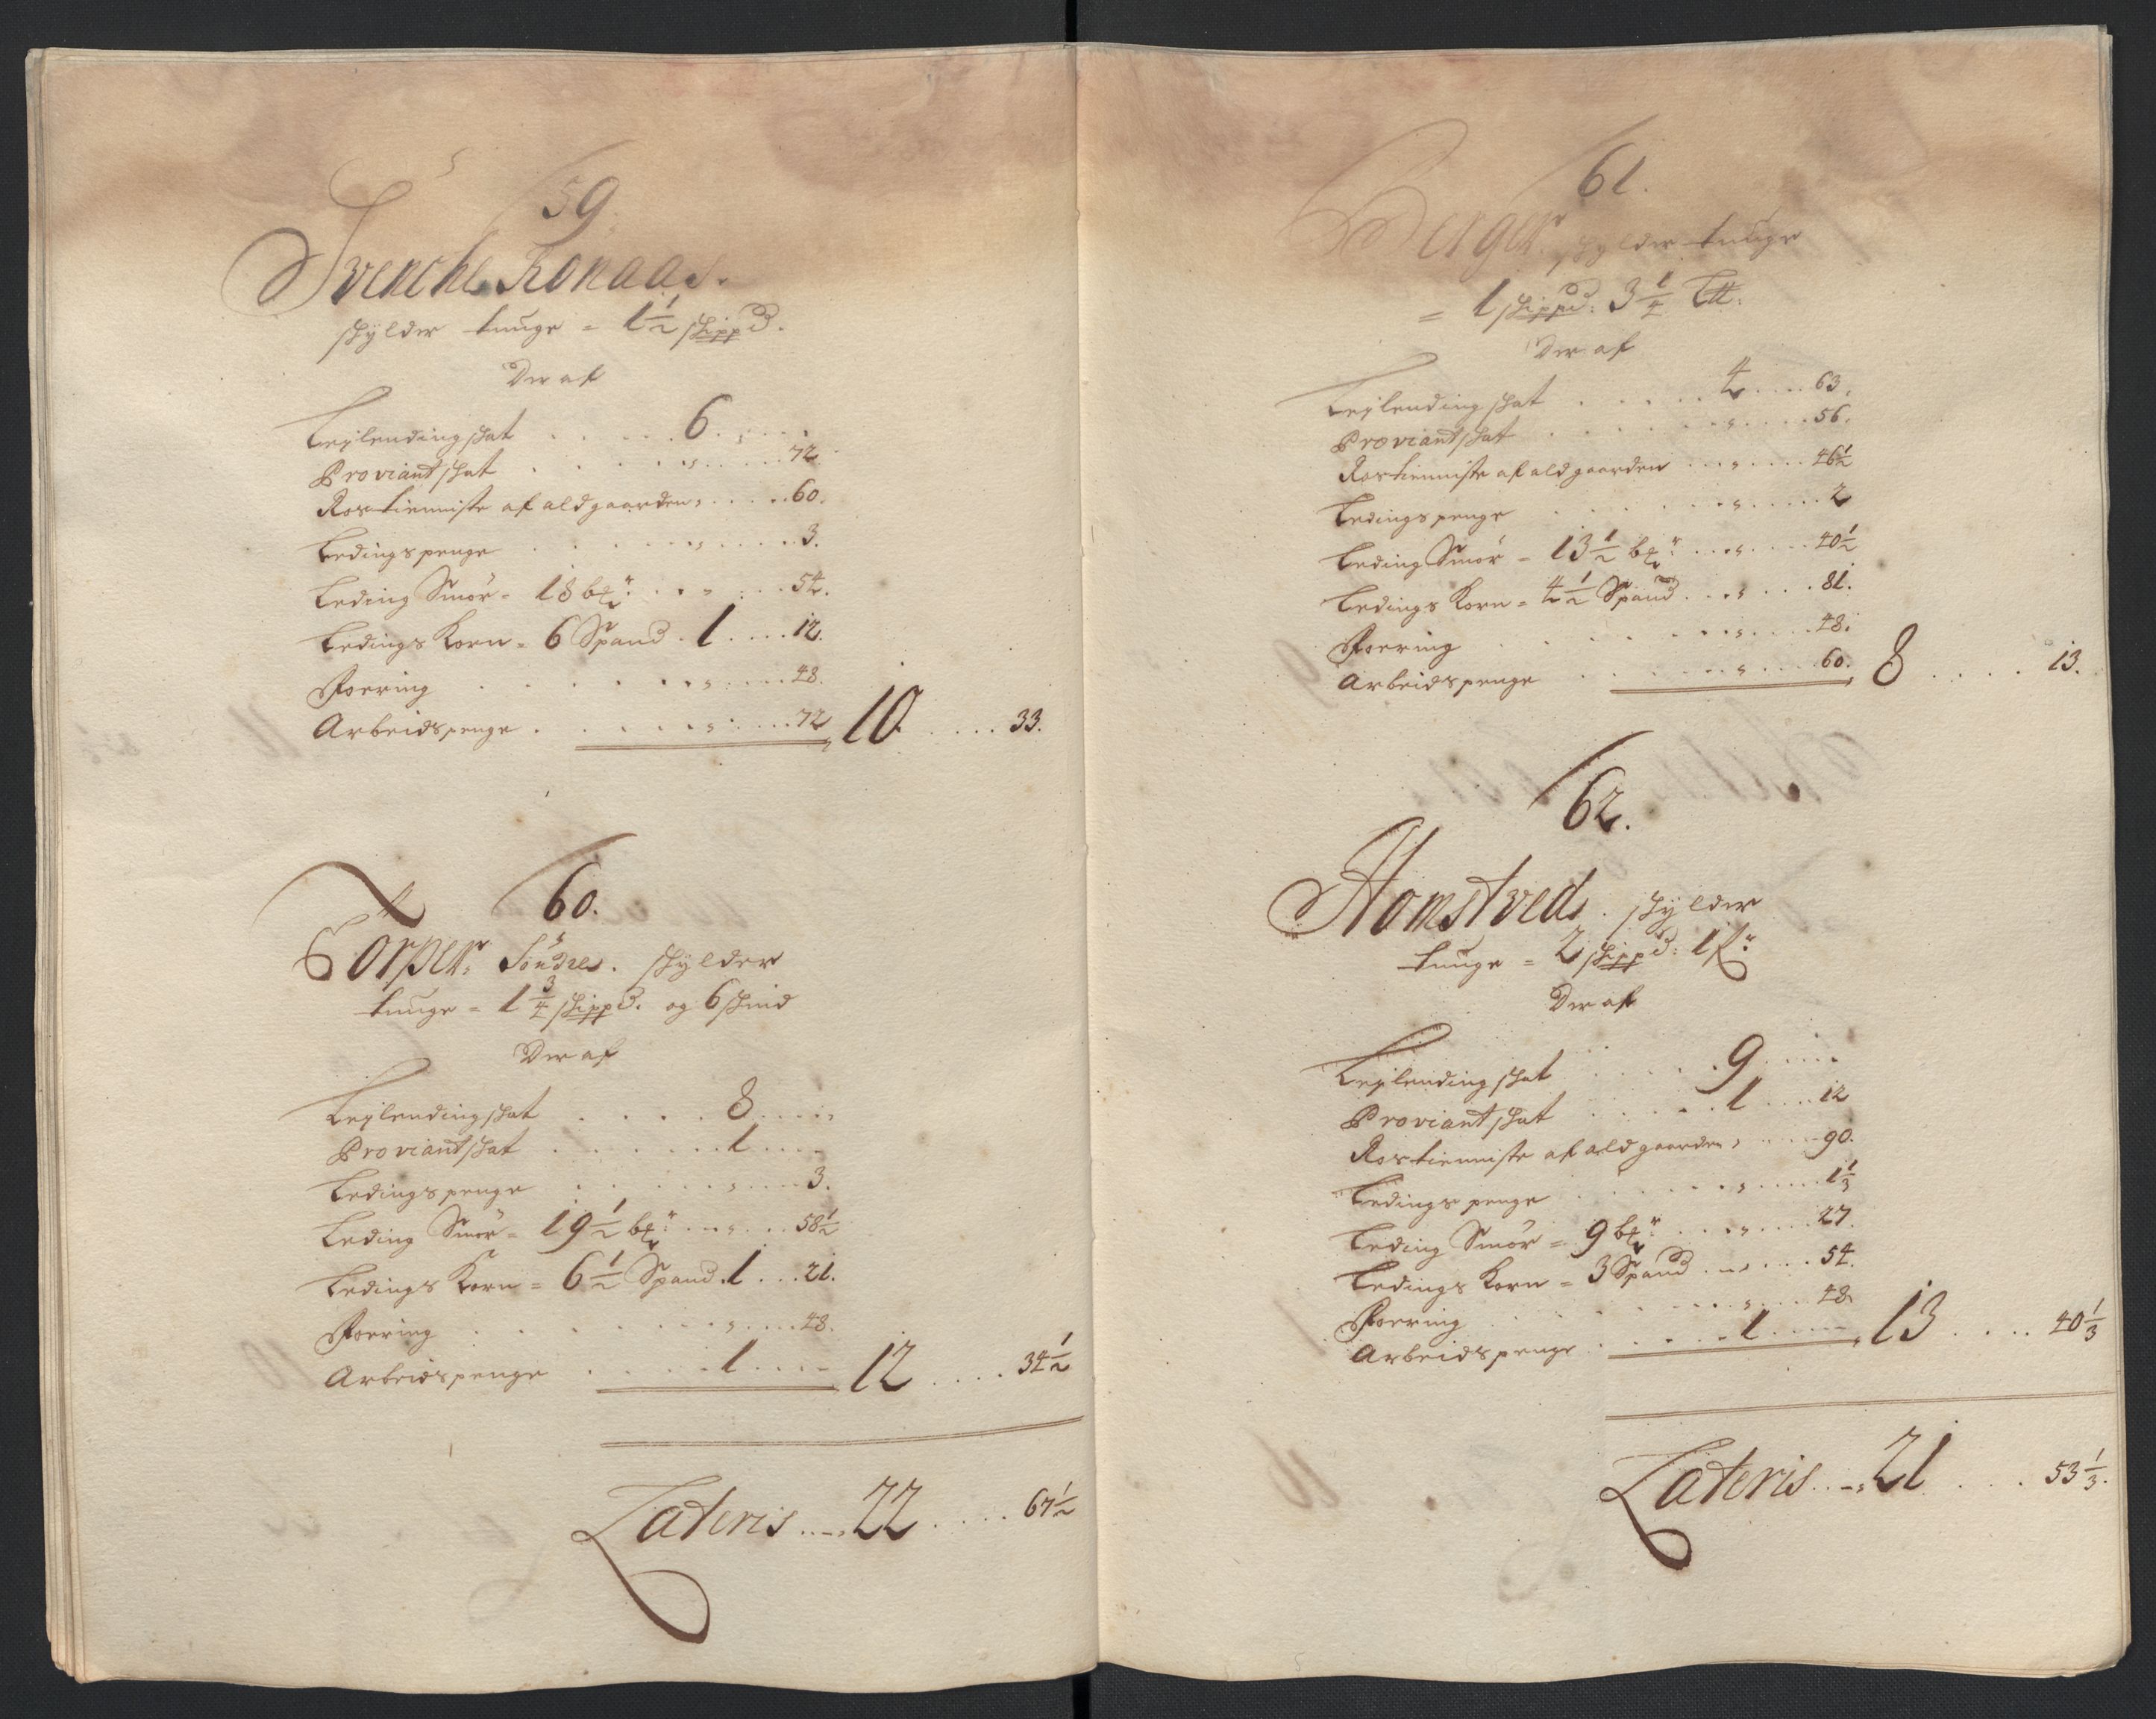 59.
Svenche Konaas.
skylder tunge = 1½ skippd.
Der af
Leylendingskat . . . . . 6 . . . .
Proviantskat . . . . . „ . . . . 72
Rostienniste af ald gaarden „ . . . . 60.
Ledingspenge . . . . . „ . . . . 3.
Leding Smör = 18 bḿr: . . . „ . . . 54.
Ledings Korn = 6 Spand . 1 . . . . 12.
Foering . . . . . „ . . . . 48.
Arbeidspenge . . . . . „ . . . . 72 10 . . . . 33.
60.
Torper, Söndre. skylder
tunge = 1¾ skippd. og 6 skind
Der af
Leylendingskat . . . . 8 . . . .
Proviantskat . . . . . 1 . . . .
Ledingspenge . . . . . „ . . . . 3.
Leding Smör = 19½ . . . „ . . . 58½
Ledings Korn = 6½ Spand . 1 . . . 21.
Foering . . . . . „ . . . . 48.
Arbeidspenge . . . . 1 . . . . 12 . . . . 34½
Lateris . . „ 22 . . . . 67½
61.
Berger. skylder tunge
= 1 skippd: 3¼ L℔.
Der af
Leylendingskat . . . . . 4 . . . . 63.
Proviantskat . . . . . „ . . . . 56.
Rostienniste af ald gaarden . . . „ . . . . 46½
Ledingspenge . . . . . „ . . . . 2
Leding Smör = 13½ . . . „ . . . . 40½
Ledings Korn = 4½ Spand . . . „ . . . 81.
Foering . . . . . „ . . . . 48.
Arbeidspenge . . . . . „ . . . . 60. 8 . . . . 13.
62.
Homstved. skylder
tunge = 2 skippd: 1
Der af
Leylendingskat . . . . . 9 . . . .
Proviantskat . . . . . 1 . . . . 12
Rostienniste af ald gaarden „ . . . . 90.
Ledings penge . . . . . „ . . . . 1⅓
Leding Smör = 9 . . . „ . . . . 27.
Ledings Korn = 3 Spand . . „ . . . 54.
Foering . . . . . „ . . . . 48
Arbeidspenge . . . . . 1 . . . . 13 . . . . 40⅓
Lateris . . „ 21 . . . . 53⅓.